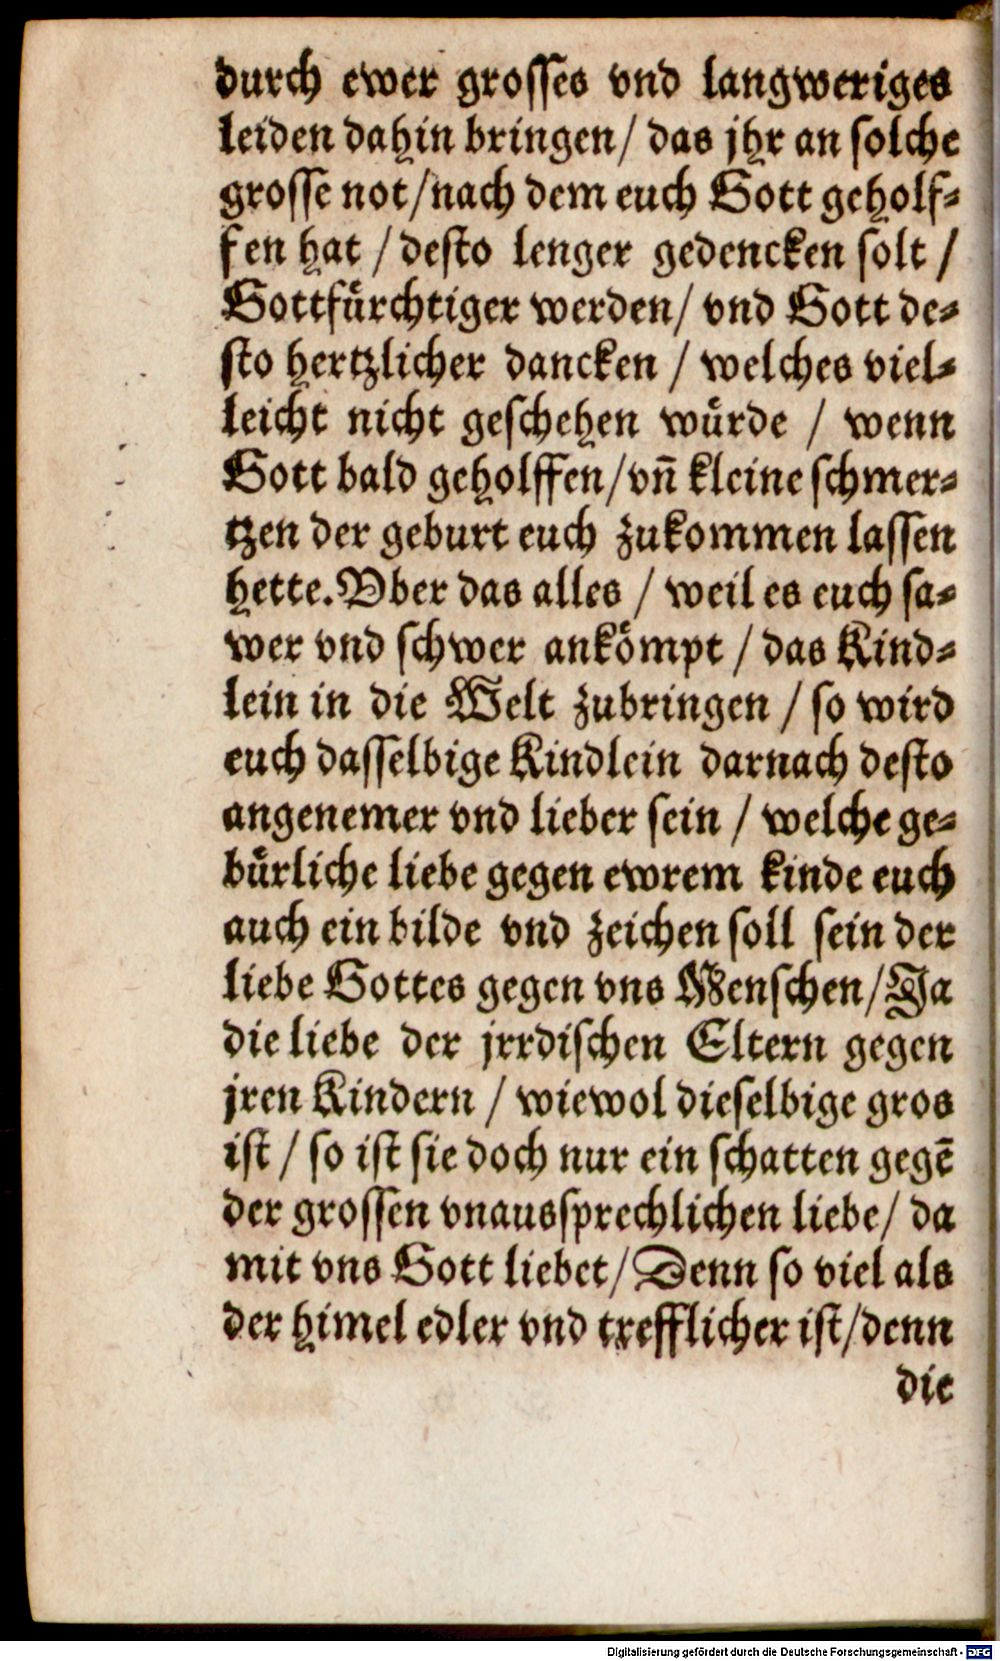 durch ewer grosses vnd langweriges
leiden dahin bringen/ das jhr an solche
grosse not/nach dem euch Gott geholf⸗
fen hat / desto lenger gedencken solt /
Gottfuͤrchtiger werden/ vnd Gott de⸗
sto hertzlicher dancken / welches viel⸗
leicht nicht geschehen wuͤrde / wenn
Gott bald geholffen/vñ kleine schmer⸗
tzen der geburt euch zukommen lassen
hette. Vber das alles / weil es euch sa⸗
wer vnd schwer ankoͤmpt / das Kind⸗
lein in die Welt zubringen / so wird
euch dasselbige Kindlein darnach desto
angenemer vnd lieber sein / welche ge⸗
buͤrliche liebe gegen ewrem kinde euch
auch ein bilde vnd zeichen soll sein der
liebe Gottes gegen vns Menschen/Ja
die liebe der jrrdischen Eltern gegen
jren Kindern / wiewol dieselbige gros
ist / so ist sie doch nur ein schatten gegē
der grossen vnaussprechlichen liebe/ da
mit vns Gott liebet/ Denn so viel als
der himel edler vnd trefflicher ist/denn
die
Digitalisierung gefördert durch die Deutsche Forschungsgemeinschaft - DFG